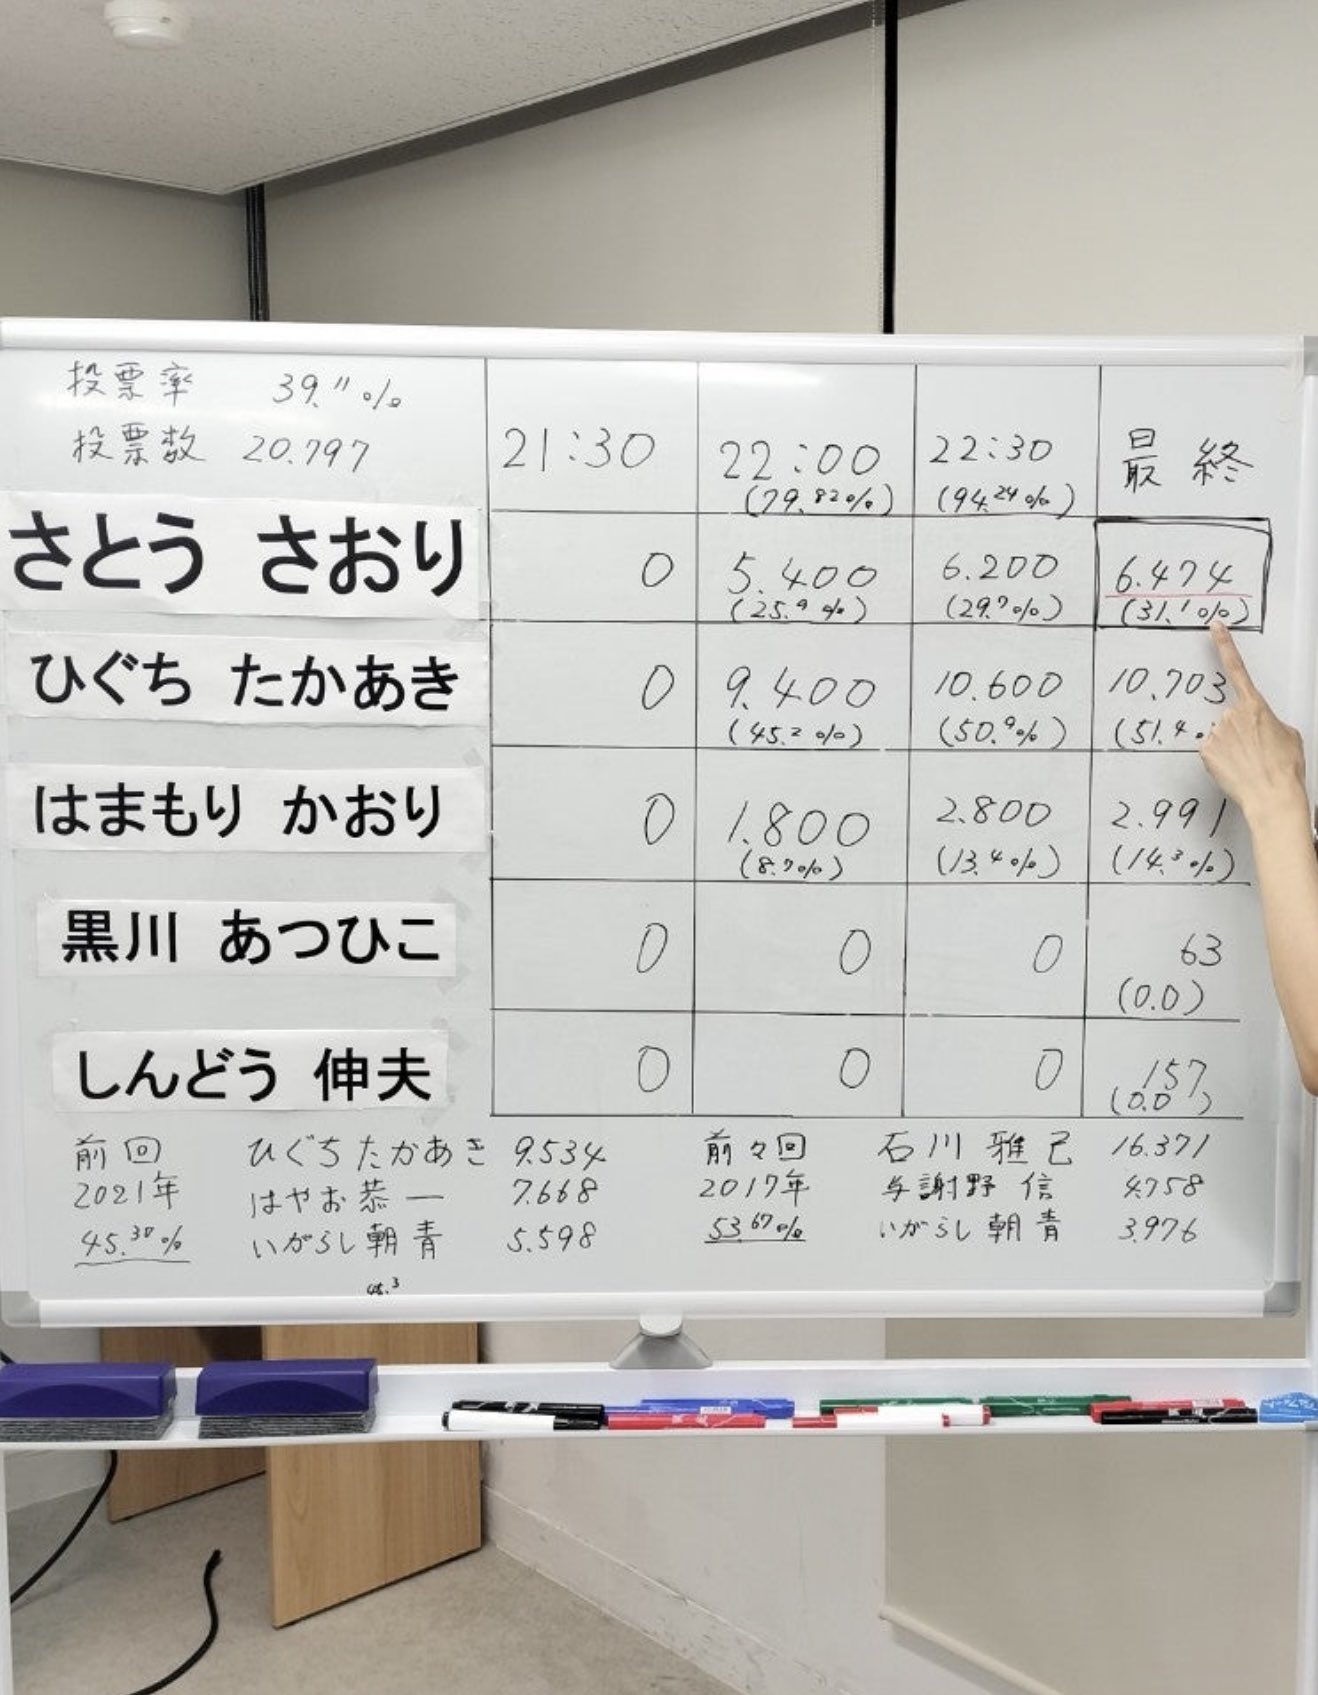 投票率 39.11%
投票数 20.797
21:30 22:00 22:30 最終
(79.82%) (94.24%)
さとう さおり 0 5.400 6.200 6.474
(25.9%) (29.7%) (31.1%)
ひぐち たかあき 0 9.400 10.600 10.703
(45.2%) (50.9%) (51.4
はまもり かおり 0 1.800 2.800 2.991
(8.7%) (13.4%) (14.3%)
黒川 あつひこ 0 0 0 63
(0.0)
しんどう 伸夫 0 0 0 157
(0.0)
前回 ひぐちたかあき 9.534 前々回 石川 雅己 16.371
2021年 はやお恭一 7.668 2017年 与謝野 信 4.758
いがらし朝青 5.598 53.67% いがらし朝青 3.976